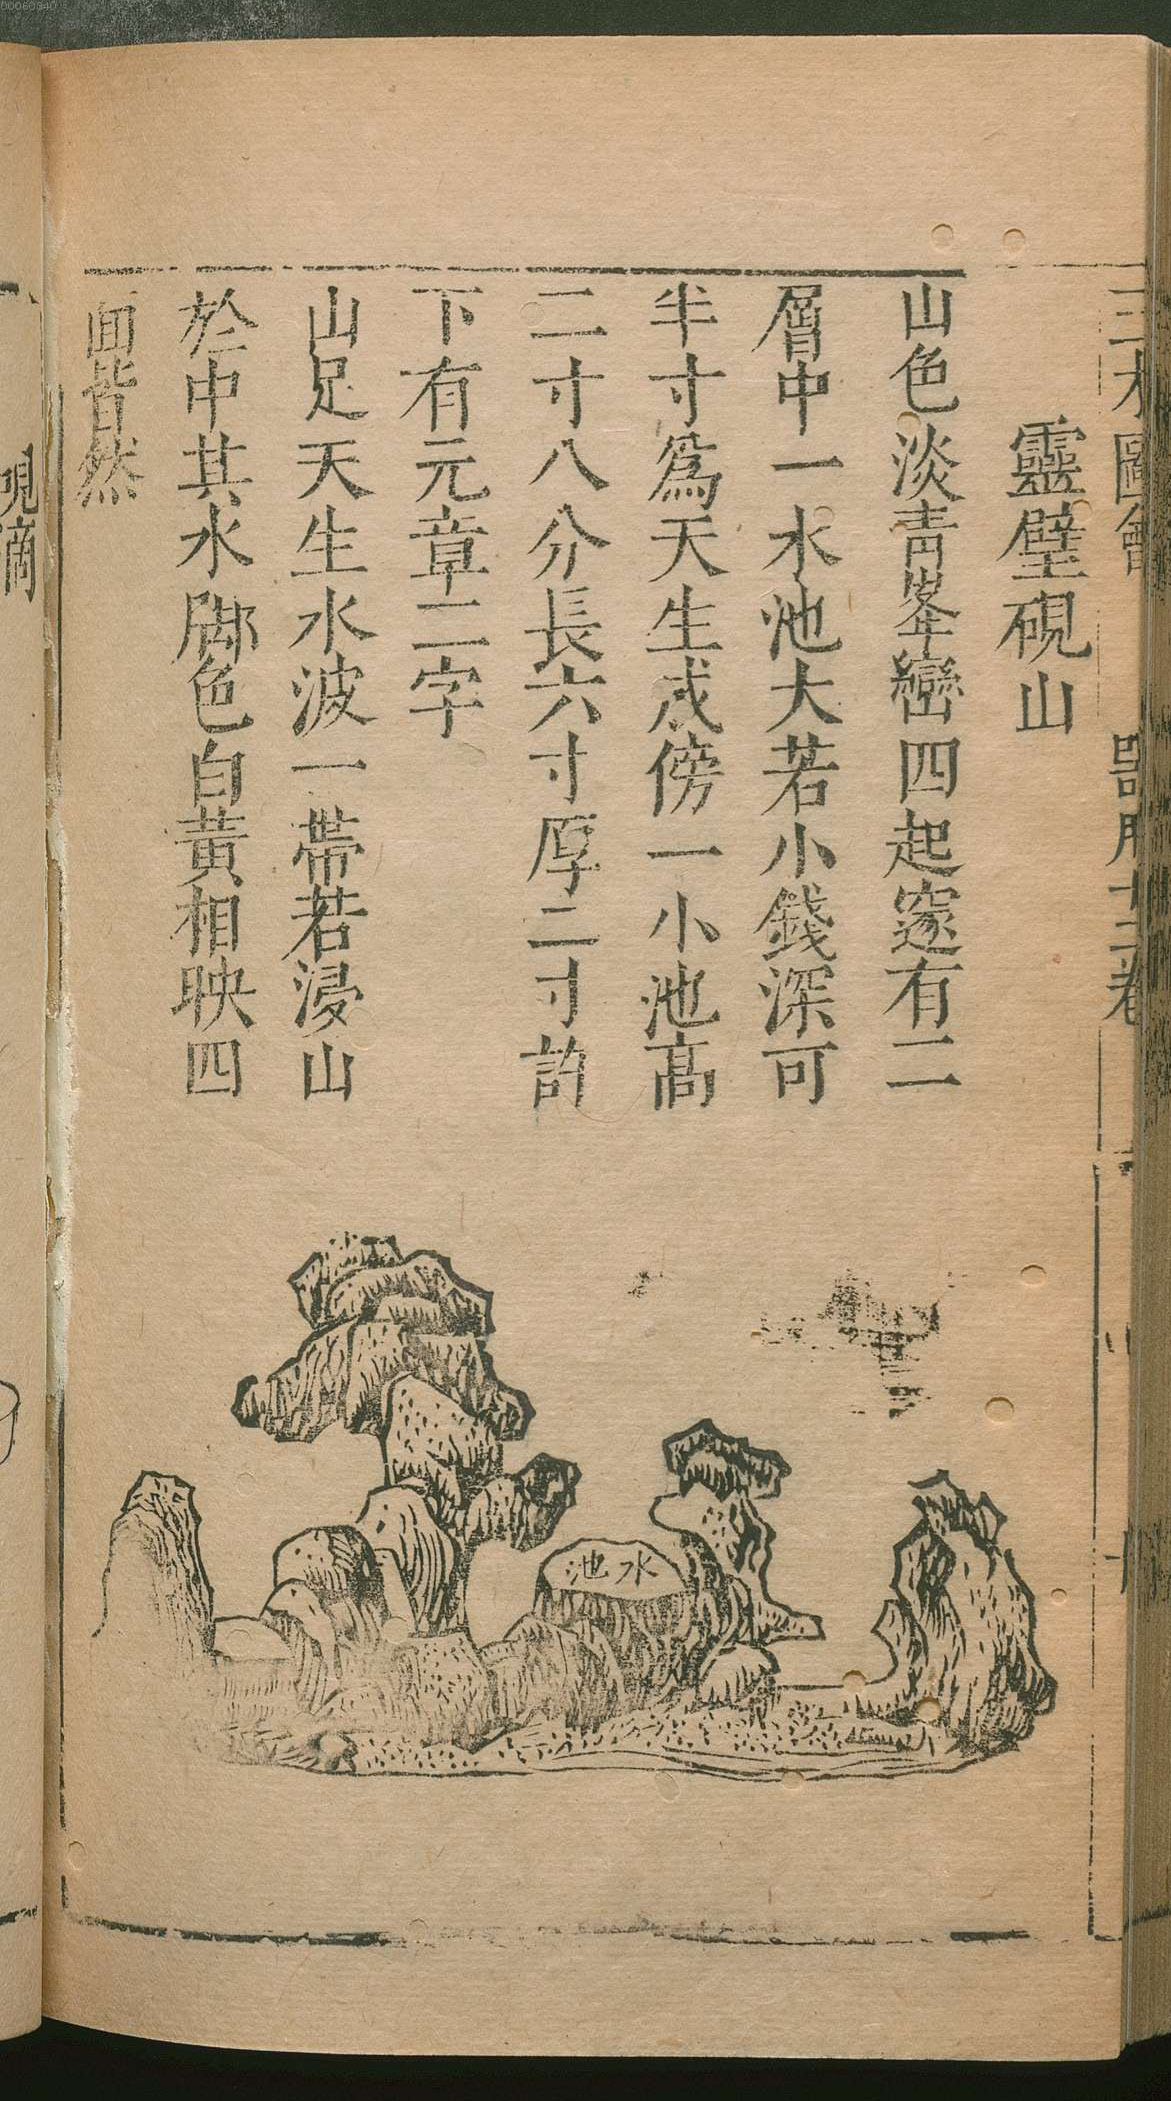 三才圖會 器用十二卷
靈璧硯山
山色淡青峯巒四起窽有二
層中一水池大若小錢深可
半寸爲天生成傍一小池高
二寸八分長六寸厚二寸許
下有元章二字
山足天生水波一帶若浸山
於中其水腳色白黃相映四
面皆然
水池
硯滴
00060040